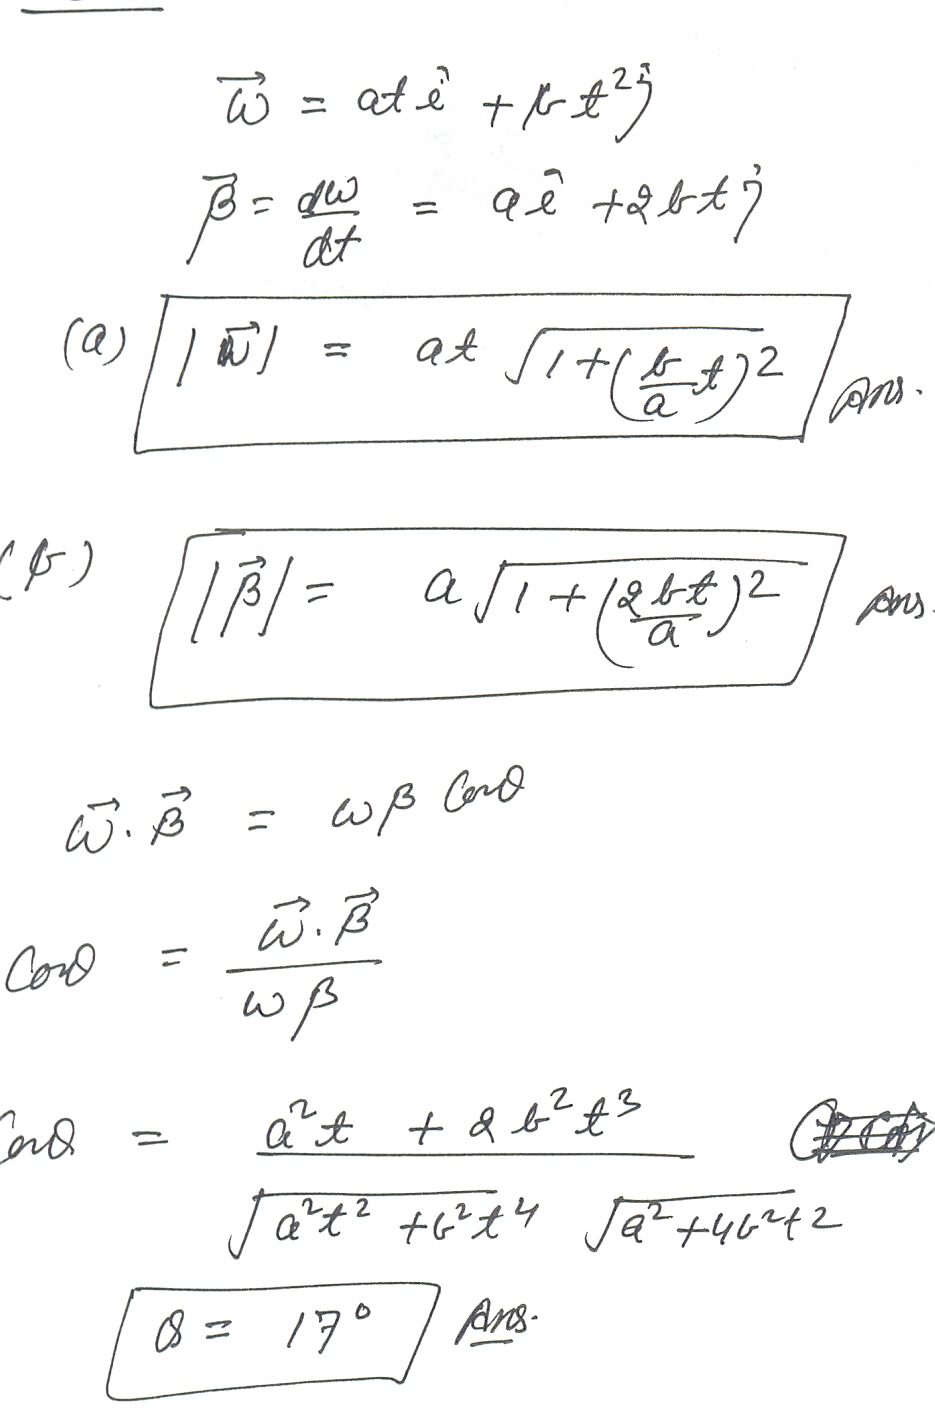 ω⃗ = at î + bt² ĵ
β⃗ = dω/dt = a î + 2bt ĵ
(a) |ω⃗| = at √(1+(b/a t)²) Ans.
(b) |β⃗| = a √(1+(2bt/a)²) Ans.
ω⃗.β⃗ = ωβ Cosθ
Cosθ = ω⃗.β⃗ / ωβ
Cosθ = a²t + 2b²t³ / √(a²t² + b²t⁴) √(a²+4b²t²)
θ = 17° Ans.